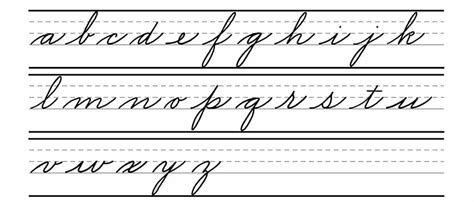 a b c d e f g h i j k
l m n o p q r s t u
v w x y z